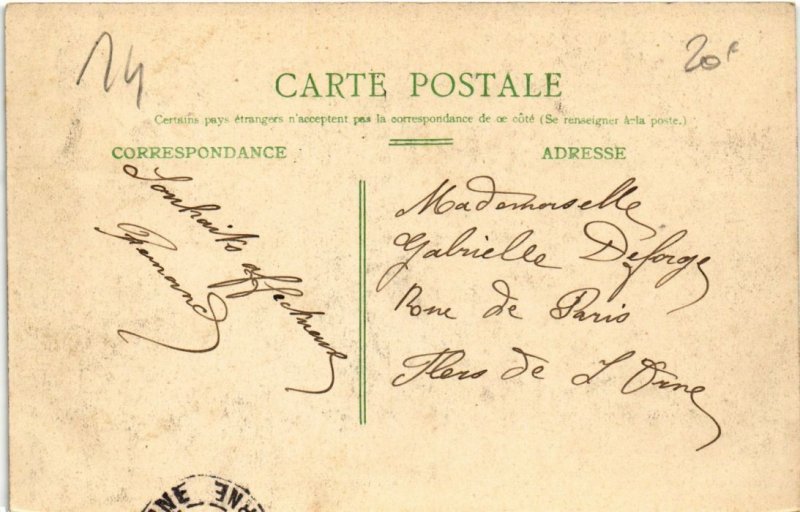 14
20f
CARTE POSTALE
Certains pays étrangers n'acceptent pas la correspondance de ce côté (Se renseigner à la poste.)
CORRESPONDANCE
Souhaits affectueux
Fernand
ADRESSE
Mademoiselle
Gabrielle Deforge
Rue de Paris
Flers de L'Orne